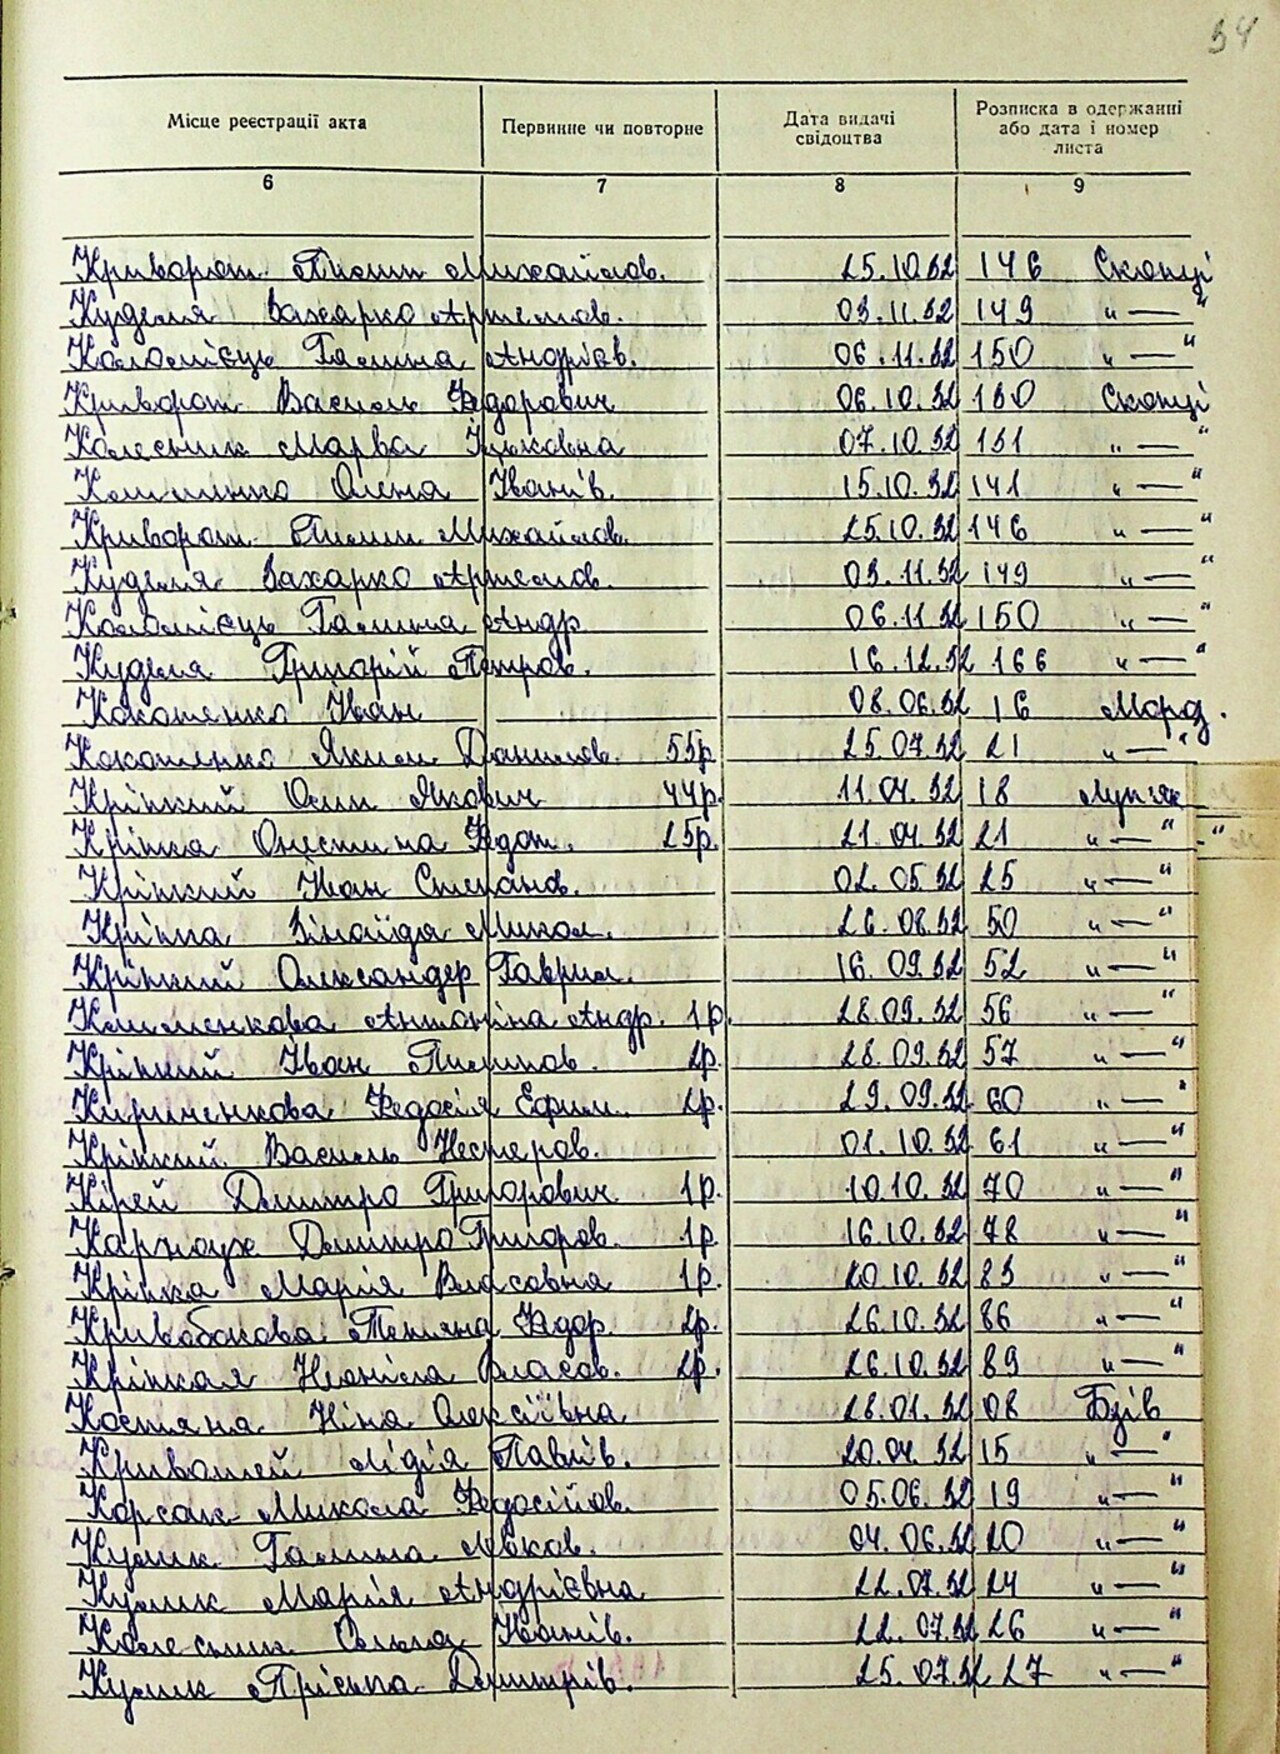 34
Місце реєстрації акта Первинне чи повторне Дата видачі свідоцтва Розписка в одержанні або дата і номер листа
6 7 8 9
Криворот Пилип Михайлов. 25.10.32 146 Скопці
Куделя Захарко Артемов. 03.11.32 149 "—"
Коломієць Галина Андрієв. 06.11.32 150 "—"
Криворот Василь Федорович 06.10.32 130 Скопці
Колесник Марва Юхковна 07.10.32 131 "—"
Клименко Олена Іванів. 15.10.32 141 "—"
Криворот Пилип Михайлов. 25.10.32 146 "—"
Куделя Захарко Артемов. 03.11.32 149 "—"
Коломієць Галина Андр. 06.11.32 150 "—"
Куделя Григорій Петров. 16.12.32 166 "—"
Кокотенко Іван 08.06.32 16 Морд.
Кокотенко Яким Данилов. 55р 25.07.32 21 "—"
Кріпкий Осип Якович 44р. 11.04.32 18 Луп'як
Кріпка Онестина Федот. 25р. 21.04.32 21 "—" - "
Кріпкий Іван Степанов. 02.05.32 25 "—"
Кріпка Зінаїда Микол. 26.08.32 50 "—"
Кріпкий Олександер Гаврил. 16.09.32 52 "—"
Клименкова Антоніна Андр. 1р. 28.09.32 56 "—"
Кріпкий Іван Пилипов. 2р. 28.09.32 57 "—"
Кириченкова Федосія Ефим. 2р. 29.09.32 60 "—"
Кріпкий Василь Нестеров. 01.10.32 61 "—"
Кірей Дмитро Григорович 1р. 10.10.32 70 "—"
Карнаух Дмитро Григоров. 1р 16.10.32 78 "—"
Кріпка Марія Власовна 1р. 20.10.32 83 "—"
Кривобокова Тетяна Федор. 2р. 26.10.32 86 "—"
Кріпкая Неоніла Власов. 2р. 26.10.32 89 "—"
Костяна Ніна Олексіївна 28.01.32 08 Бзів
Кривошей Лідія Павлів. 20.04.32 15 "—"
Корсак Микола Федосійов. 05.06.32 19 "—"
Кулик Галина Явков. 04.06.32 20 "—"
Кулик Марія Андрієвна 22.07.32 24 "—"
Колесник Ольга Іванів. 22.07.32 26 "—"
Кулик Пріська Дмитрів. 25.07.32 27 "—"